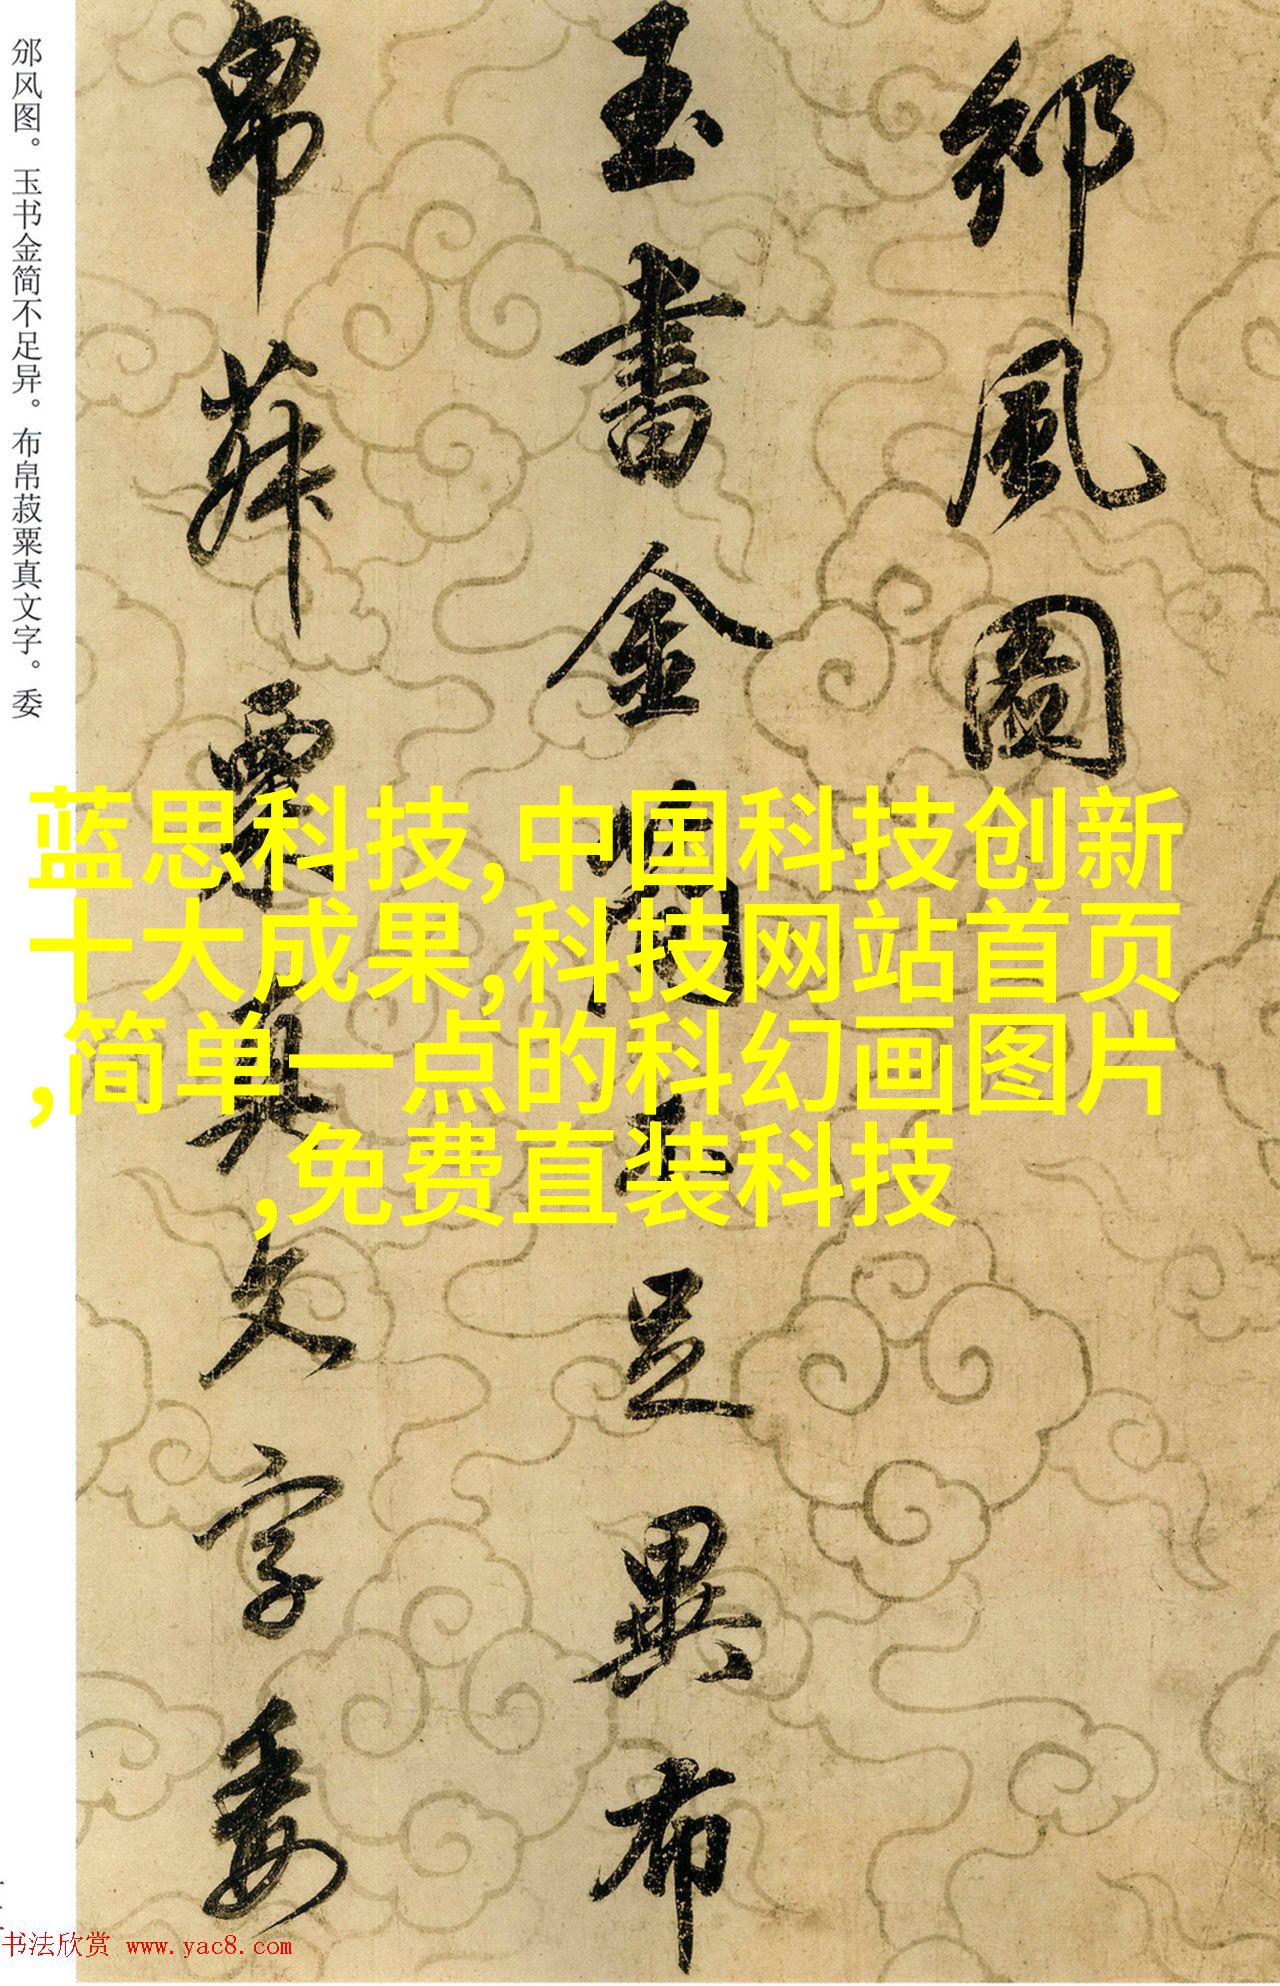 邠风图。玉书金简不足异。布帛菽粟真文字。委
邠風圖
玉書金簡不足異布
帛菽粟真文字委
蓝思科技,中国科技创新
十大成果,科技网站首页
,简单一点的科幻画图片
,免费直装科技
书法欣赏 www.yac8.com